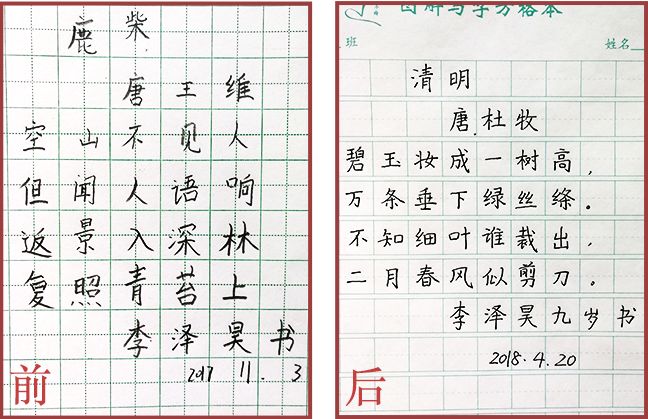 鹿柴
唐王维
空山不见人
但闻人语响
返景入深林
复照青苔上
李泽昊书
2017 11. 3
前
班
姓名
清明
唐.杜牧
碧玉妆成一树高,
万条垂下绿丝绦。
不知细叶谁裁出,
二月春风似剪刀。
李泽昊九岁书
2018.4.20
后